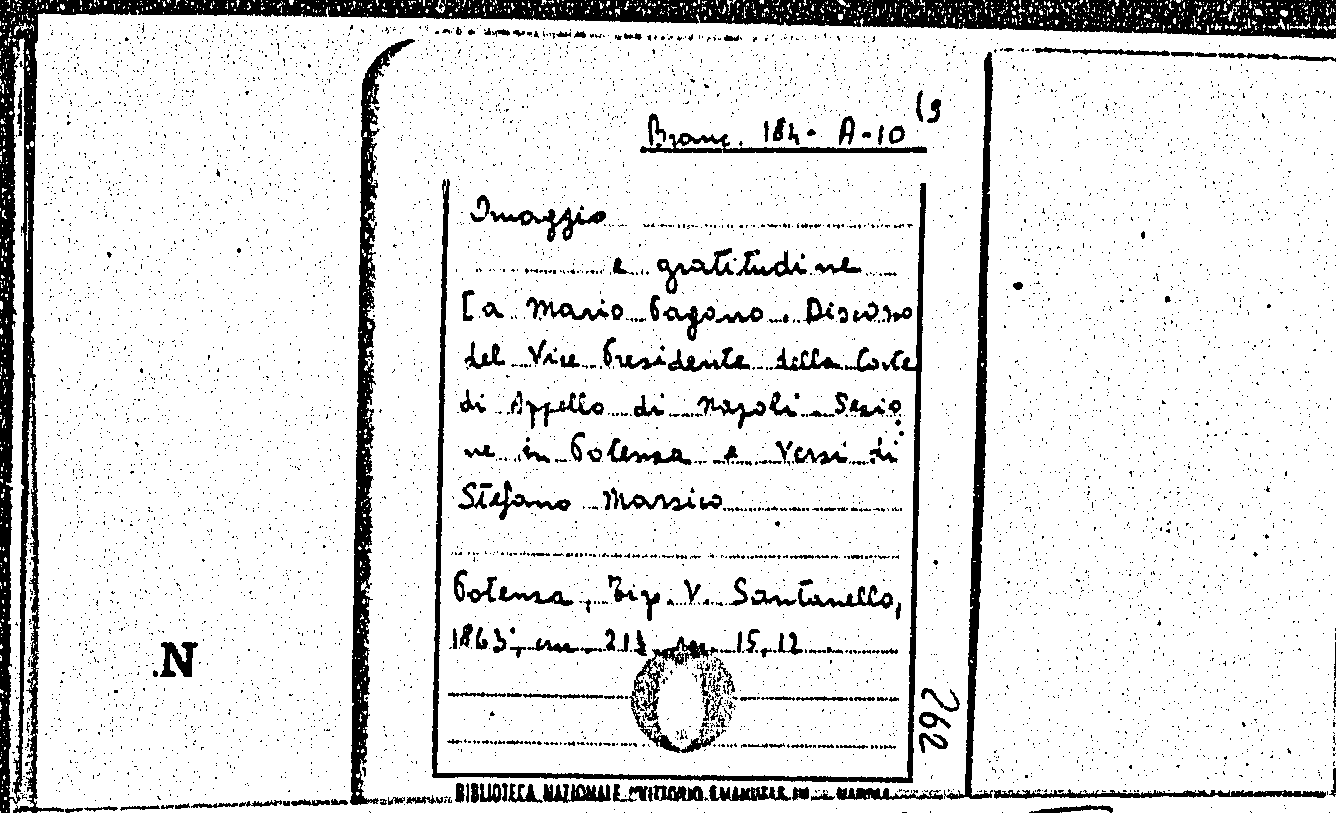 Branc. 184- A-10 (9
Omaggio
e gratitudine
[a Mario Pagano. Discorso
del Vice Presidente della Corte
di Appello di Napoli. Sezio
ne in Potenza e Versi di
Stefano Marsico
Potenza, Tip. V. Santanello,
1863, cm. 21½ pp. 15, 12
262
.N
BIBLIOTECA NAZIONALE "VITTORIO EMANUELE III" - NAPOLI